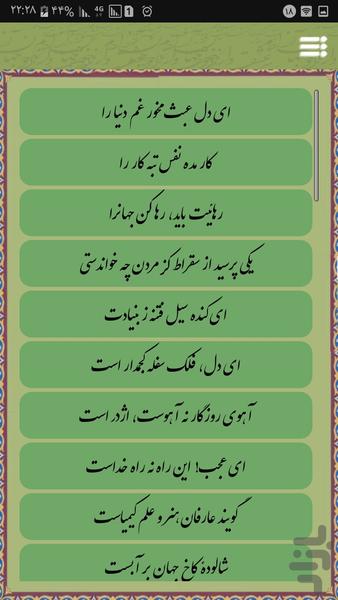 ۲۲:۲۸ ۴۴% 4G 1 ۱۸
ای دل عبث مخور غم دنیا را
کار مده نفس تبه کار را
رهائیت باید، رها کن جهانرا
یکی پرسید از سقراط کز مردن چه خواندستی
ای کنده سیل فتنه ز بنیادت
ای دل، فلک سفله کجمدار است
آهوی روزگار نه آهوست، اژدر است
ای عجب! این راه نه راه خداست
گویند عارفان هنر و علم کیمیاست
شالودهٔ کاخ جهان بر آبست
بازار